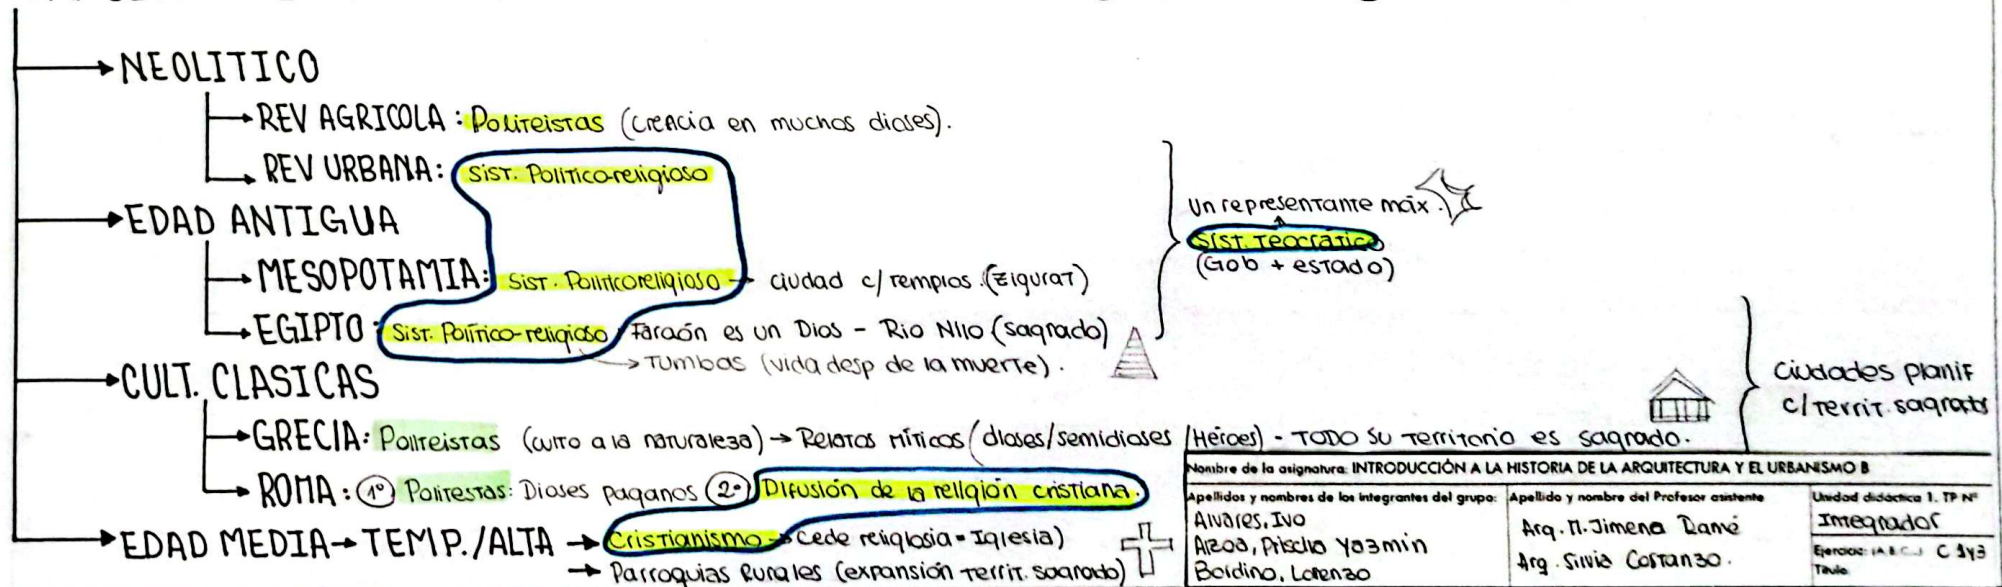 NEOLITICO
REV AGRICOLA: Politeistas (crencia en muchos dioses).
REV URBANA: Sist. Politico-religioso
EDAD ANTIGUA
MESOPOTAMIA: Sist. Politicoreligioso → ciudad c/ templos (zigurat)
EGIPTO: Sist. Político-religioso / Faraón es un Dios - Rio Nilo (sagrado)
→ Tumbas (vida desp de la muerte).
Un representante máx.
Sist. Teocrático
(Gob + estado)
CULT. CLASICAS
GRECIA: Politeistas (culto a la naturaleza) → Relatos míticos (dioses/semidioses/Héroes) - TODO su territorio es sagrado.
ROMA: 1º Politestas: Dioses paganos 2º Difusión de la religión cristiana.
ciudades planif
c/ territ. sagrado
EDAD MEDIA → TEMP./ALTA → Cristianismo → Cede religiosia = Iglesia)
→ Parroquias Rurales (expansión territ. sagrado)
Nombre de la asignatura: INTRODUCCIÓN A LA HISTORIA DE LA ARQUITECTURA Y EL URBANISMO B
Apellidos y nombres de los integrantes del grupo:
Alvares, Ivo
Boldino, Lorenzo
Apellido y nombre del Profesor asistente
Arq. M. Jimena Damé
Arq. Silvia Costanzo.
Unidad didáctica 1. TP Nº
Integrador
Ejercicio: (A.B.C...) C 1y3
Título: